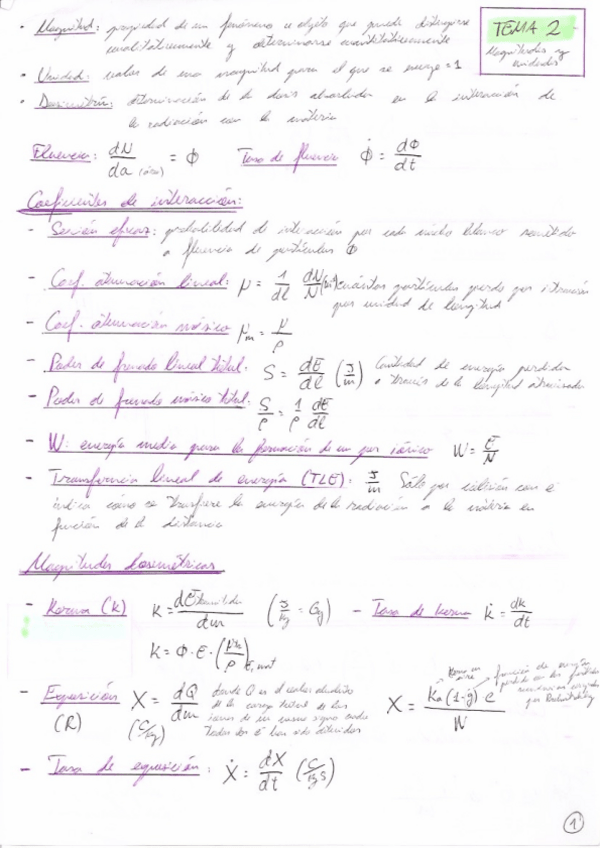 TEMA 2
Magnitudes y
unidades
- Magnitud: propiedad de un fenómeno u objeto que puede distinguirse
cualitativamente y determinarse cuantitativamente
- Unidad: valor de una magnitud para el que se =1
- Dosimetría: determinación de la dosis absorbida en la interacción de
la radiación con la materia
Fluencia: dN/da (área) = Φ Tasa de fluencia Φ̇ = dΦ/dt
Coeficientes de interacción:
- Sección eficaz: probabilidad de interacción por cada núcleo blanco sometido
a fluencia de partículas Φ
- Coef. atenuación lineal: μ = 1/dl dN/N (m⁻¹) cuántas partículas pierdo por interacción
por unidad de longitud
- Coef. atenuación másico μm = μ/ρ
- Poder de frenado lineal total: S = dE/dl (J/m) Cantidad de energía perdida
a través de la longitud atravesada
- Poder de frenado másico total: S/ρ = 1/ρ dE/dl
- W: energía media para la formación de un par iónico W = E/N
- Transferencia lineal de energía (TLE): J/m Sólo por colisión con e⁻
indica cómo se transfiere la energía de la radiación a la materia en
función de la distancia
Magnitudes dosimétricas
- Kerma (K) K = dE transferida/dm (J/kg = Gy) - Tasa de kerma K̇ = dk/dt
K = Φ · E · (μtr/ρ) E, mat
- Exposición X = dQ/dm donde Q es el valor absoluto
(R) (C/kg) de la carga total de los
iones de un mismo signo cuando
todos los e⁻ han sido detenidos
X = Ka(1-g) e/W
Kerma en
aire
fracción de energía
perdida por las partículas
cargadas
por Bremsstrahlung
- Tasa de exposición: Ẋ = dX/dt (C/kg s)
1